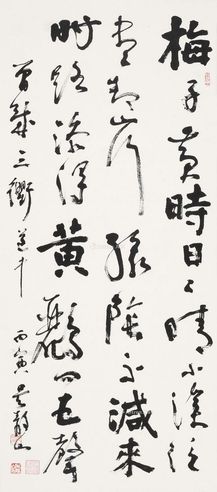 梅子黄時日〻晴小溪泛
盡却山行緑陰不減來
時路添得黄鸝四五聲
曾幾三衢道中 丙寅